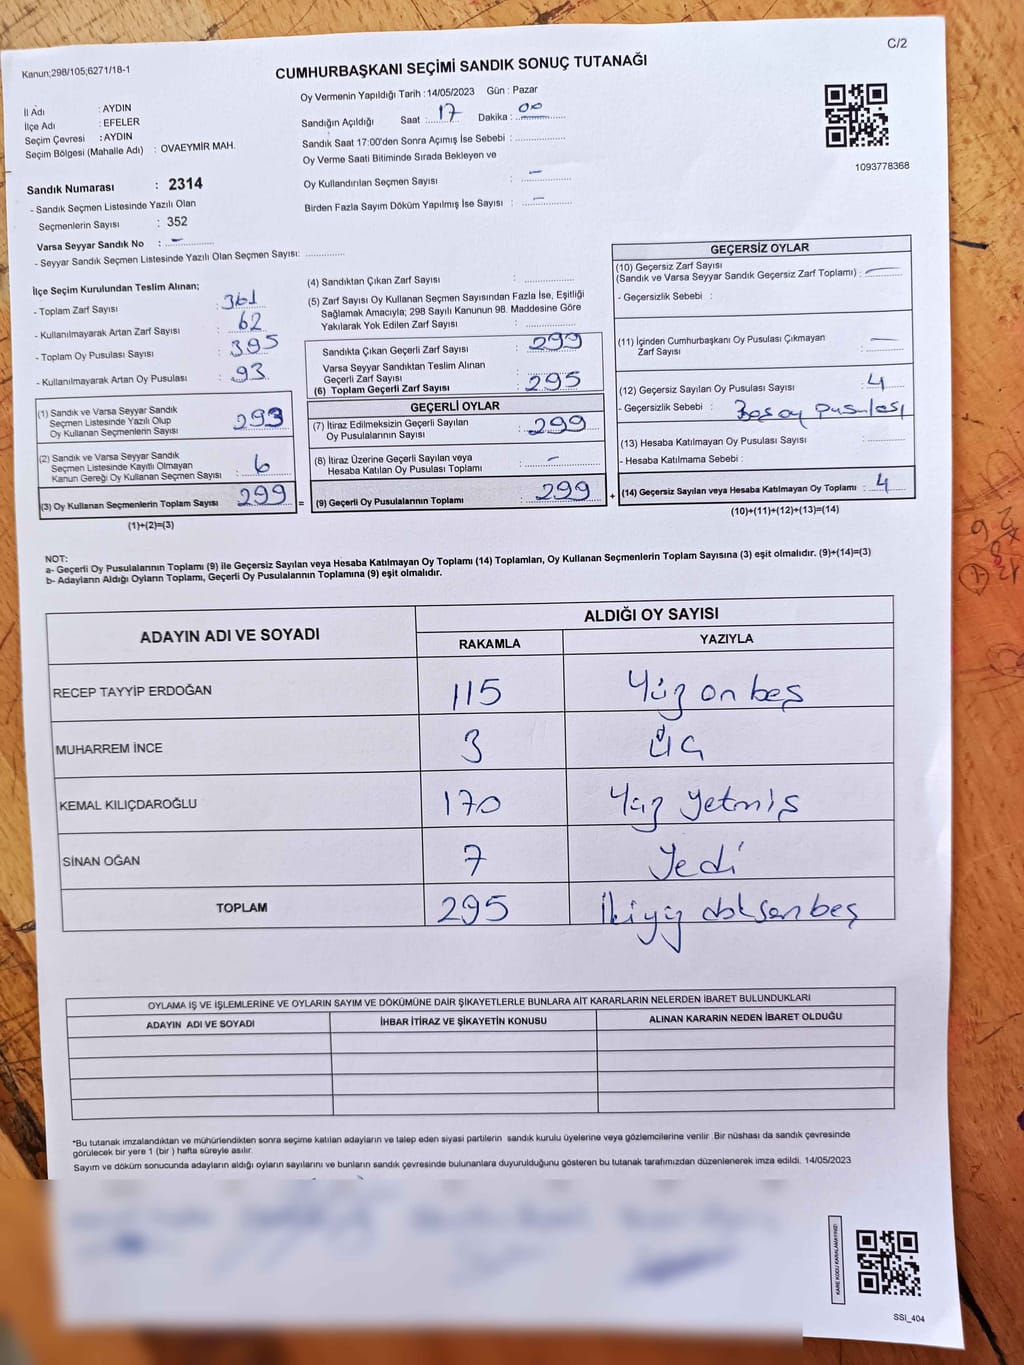 C/2
Kanun;298/105;6271/18-1
CUMHURBAŞKANI SEÇİMİ SANDIK SONUÇ TUTANAĞI
İl Adı : AYDIN
İlçe Adı : EFELER
Seçim Çevresi : AYDIN
Seçim Bölgesi (Mahalle Adı) : OVAEYMİR MAH.
Oy Vermenin Yapıldığı Tarih :14/05/2023 Gün : Pazar
Sandığın Açıldığı Saat :17 Dakika : 00
Sandık Saat 17:00'den Sonra Açımış İse Sebebi :
Oy Verme Saati Bitiminde Sırada Bekleyen ve
Oy Kullandırılan Seçmen Sayısı : -
Birden Fazla Sayım Döküm Yapılmış İse Sayısı : -
1093778368
Sandık Numarası : 2314
- Sandık Seçmen Listesinde Yazılı Olan
Seçmenlerin Sayısı : 352
Varsa Seyyar Sandık No : -
- Seyyar Sandık Seçmen Listesinde Yazılı Olan Seçmen Sayısı:
İlçe Seçim Kurulundan Teslim Alınan;
- Toplam Zarf Sayısı : 361
- Kullanılmayarak Artan Zarf Sayısı : 62
- Toplam Oy Pusulası Sayısı : 395
- Kullanılmayarak Artan Oy Pusulası : 93
(1) Sandık ve Varsa Seyyar Sandık
Seçmen Listesinde Yazılı Olup
Oy Kullanan Seçmenlerin Sayısı : 293
(2) Sandık ve Varsa Seyyar Sandık
Seçmen Listesinde Kayıtlı Olmayan
Kanun Gereği Oy Kullanan Seçmen Sayısı : 6
(3) Oy Kullanan Seçmenlerin Toplam Sayısı : 299
(1)+(2)=(3)
(4) Sandıktan Çıkan Zarf Sayısı :
(5) Zarf Sayısı Oy Kullanan Seçmen Sayısından Fazla İse, Eşitliği
Sağlamak Amacıyla; 298 Sayılı Kanunun 98. Maddesine Göre
Yakılarak Yok Edilen Zarf Sayısı :
Sandıkta Çıkan Geçerli Zarf Sayısı : 299
Varsa Seyyar Sandıktan Teslim Alınan
Geçerli Zarf Sayısı :
(6) Toplam Geçerli Zarf Sayısı : 295
GEÇERLİ OYLAR
(7) İtiraz Edilmeksizin Geçerli Sayılan
Oy Pusulalarının Sayısı : 299
(8) İtiraz Üzerine Geçerli Sayılan veya
Hesaba Katılan Oy Pusulası Toplamı : -
= (9) Geçerli Oy Pusulalarının Toplamı : 299 +
GEÇERSİZ OYLAR
(10) Geçersiz Zarf Sayısı
(Sandık ve Varsa Seyyar Sandık Geçersiz Zarf Toplamı) : -
- Geçersizlik Sebebi :
(11) İçinden Cumhurbaşkanı Oy Pusulası Çıkmayan
Zarf Sayısı : -
(12) Geçersiz Sayılan Oy Pusulası Sayısı : 4
- Geçersizlik Sebebi : Bos oy pusulası
(13) Hesaba Katılmayan Oy Pusulası Sayısı :
- Hesaba Katılmama Sebebi :
(14) Geçersiz Sayılan veya Hesaba Katılmayan Oy Toplamı : 4
(10)+(11)+(12)+(13)=(14)
NOT:
a- Geçerli Oy Pusulalarının Toplamı (9) ile Geçersiz Sayılan veya Hesaba Katılmayan Oy Toplamı (14) Toplamları, Oy Kullanan Seçmenlerin Toplam Sayısına (3) eşit olmalıdır. (9)+(14)=(3)
b- Adayların Aldığı Oyların Toplamı, Geçerli Oy Pusulalarının Toplamına (9) eşit olmalıdır.
ADAYIN ADI VE SOYADI
ALDIĞI OY SAYISI
RAKAMLA YAZIYLA
RECEP TAYYİP ERDOĞAN 115 Yüz on beş
MUHARREM İNCE 3 üç
KEMAL KILIÇDAROĞLU 170 Yüz yetmiş
SİNAN OĞAN 7 Yedi
TOPLAM 295 İkiyüz doksan beş
OYLAMA İŞ VE İŞLEMLERİNE VE OYLARIN SAYIM VE DÖKÜMÜNE DAİR ŞİKAYETLERLE BUNLARA AİT KARARLARIN NELERDEN İBARET BULUNDUKLARI
ADAYIN ADI VE SOYADI İHBAR İTİRAZ VE ŞİKAYETİN KONUSU ALINAN KARARIN NEDEN İBARET OLDUĞU
*Bu tutanak imzalandıktan ve mühürlendikten sonra seçime katılan adayların ve talep eden siyasi partilerin sandık kurulu üyelerine veya gözlemcilerine verilir .Bir nüshası da sandık çevresinde
görülecek bir yere 1 (bir ) hafta süreyle asılır.
Sayım ve döküm sonucunda adayların aldığı oyların sayılarını ve bunların sandık çevresinde bulunanlara duyurulduğunu gösteren bu tutanak tarafımızdan düzenlenerek imza edildi. 14/05/2023
KARE KODU KARALAMAYINIZ!
SSI_404